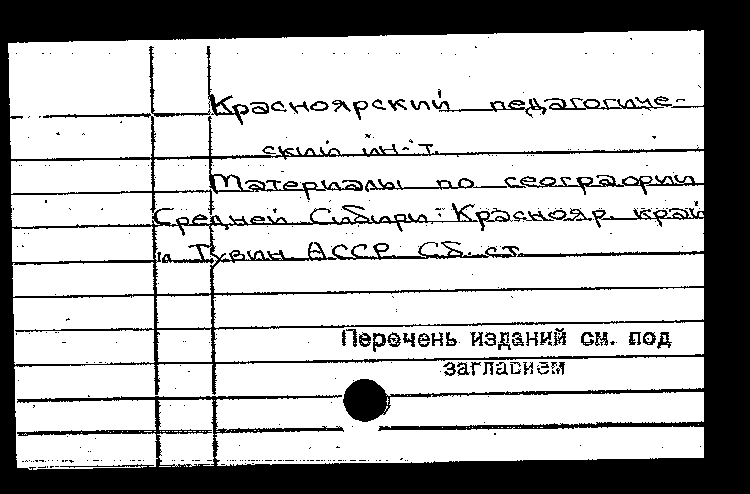 Красноярский педагогиче-
ский ин-т.
Материалы по географии
Средней Сибири: Краснояр. край
и Тувин. АССР. Сб. ст.
Перечень изданий см. под
заглавием